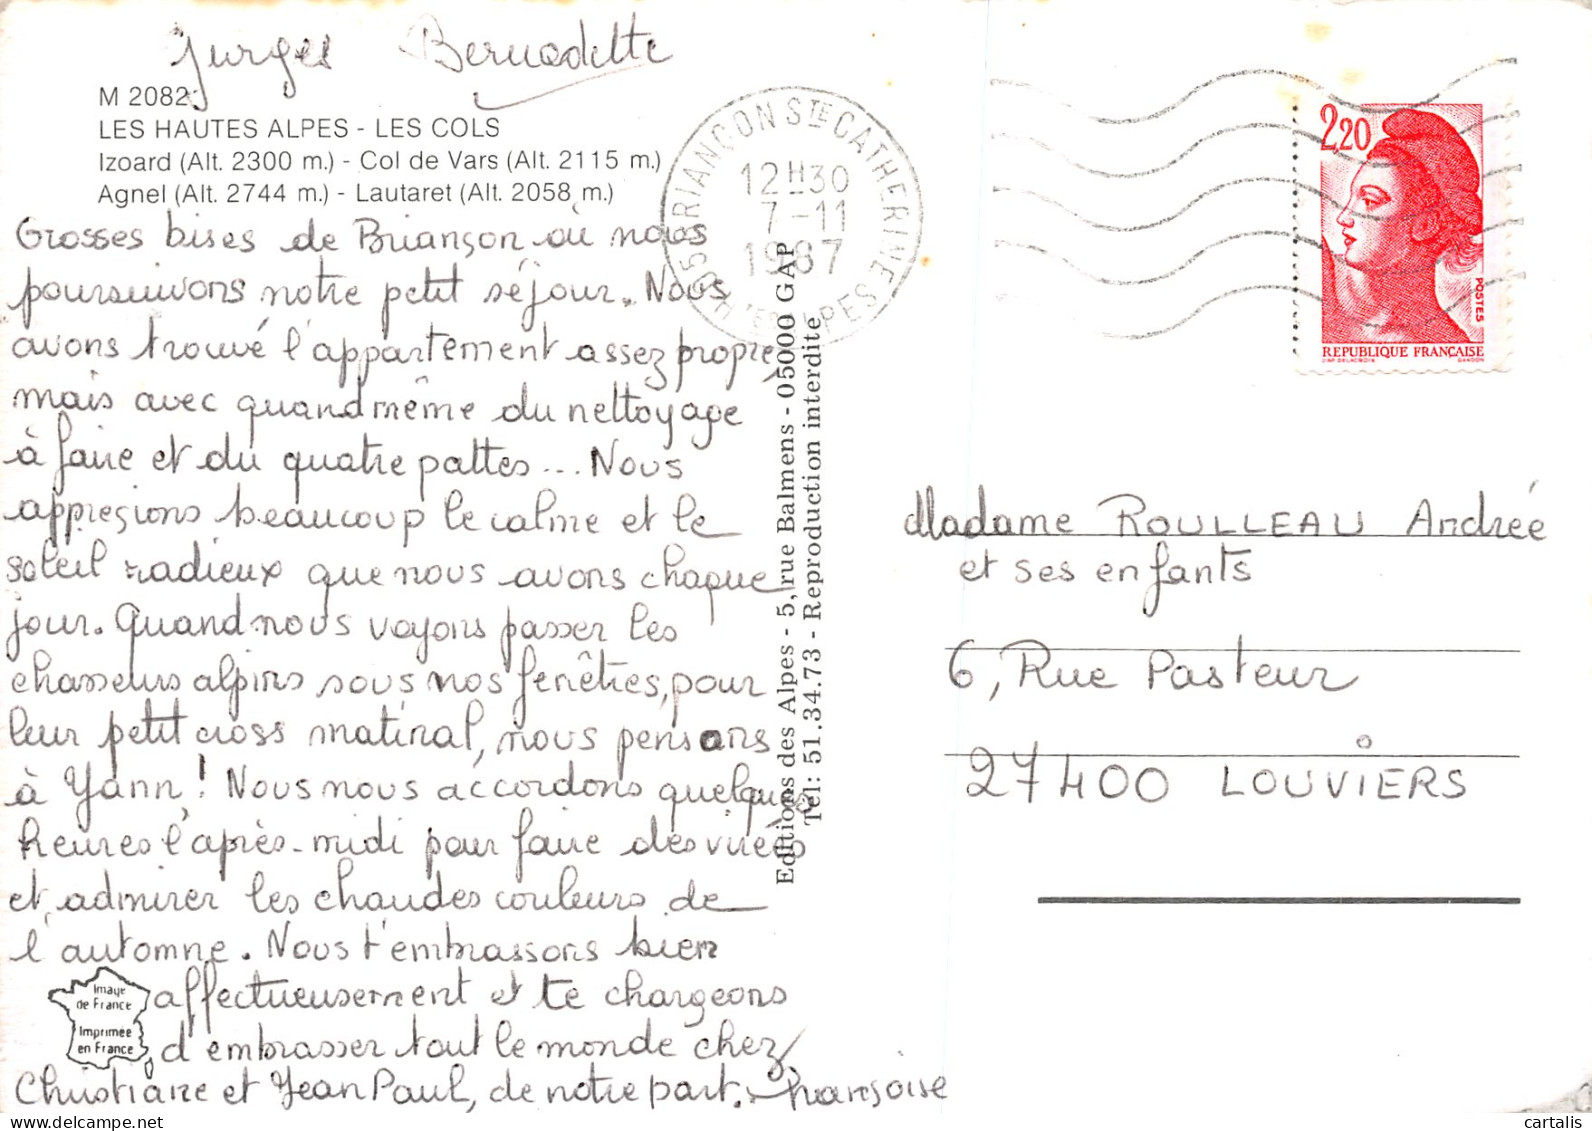 Bernadette
M 2082
LES HAUTES ALPES - LES COLS
Izoard (Alt. 2300 m.) - Col de Vars (Alt. 2115 m.)
Agnel (Alt. 2744 m.) - Lautaret (Alt. 2058 m.)
Grosses bises de Briançon où nous
poursuivons notre petit séjour. Nous
avons trouvé l'appartement assez propre,
mais avec quand même du nettoyage
à faire et du quatre pattes... Nous
apprécions beaucoup le calme et le
soleil radieux que nous avons chaque
jour. Quand nous voyons passer les
chasseurs alpins sous nos fenêtres, pour
leur petit cross matinal, nous pensons
à Yann! Nous nous accordons quelques
heures l'après-midi pour faire des virées
et admirer les chaudes couleurs de
l'automne. Nous t'embrassons bien
affectueusement et te chargeons
d'embrasser tout le monde chez
Christiane et Jean Paul, de notre part. Françoise
Image
de France
Imprimée
en France
Editions des Alpes - 5, rue Balmens - 05000 GAP
Tél: 51.34.73 - Reproduction interdite
BRIANCON STE CATHERINE
12H30
7-11
1987
05 HTES ALPES
2,20
POSTES
REPUBLIQUE FRANÇAISE
D'AP. DELACROIX GANDON
Madame ROULLEAU Andrée
et ses enfants
6, Rue Pasteur
27400 LOUVIERS
cartalis